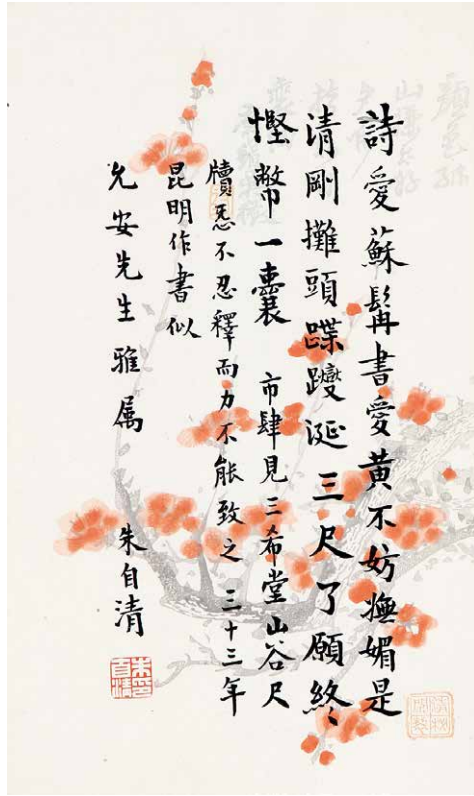 詩愛蘇髯書愛黃不妨撫媚是
清剛攤頭蹀躞涎三尺了願終
慳幣一囊 市肆見三希堂山谷尺
牘惡不忍釋而力不能致之 三十三年
昆明作書似
允安先生雅属
朱自清
朱自清